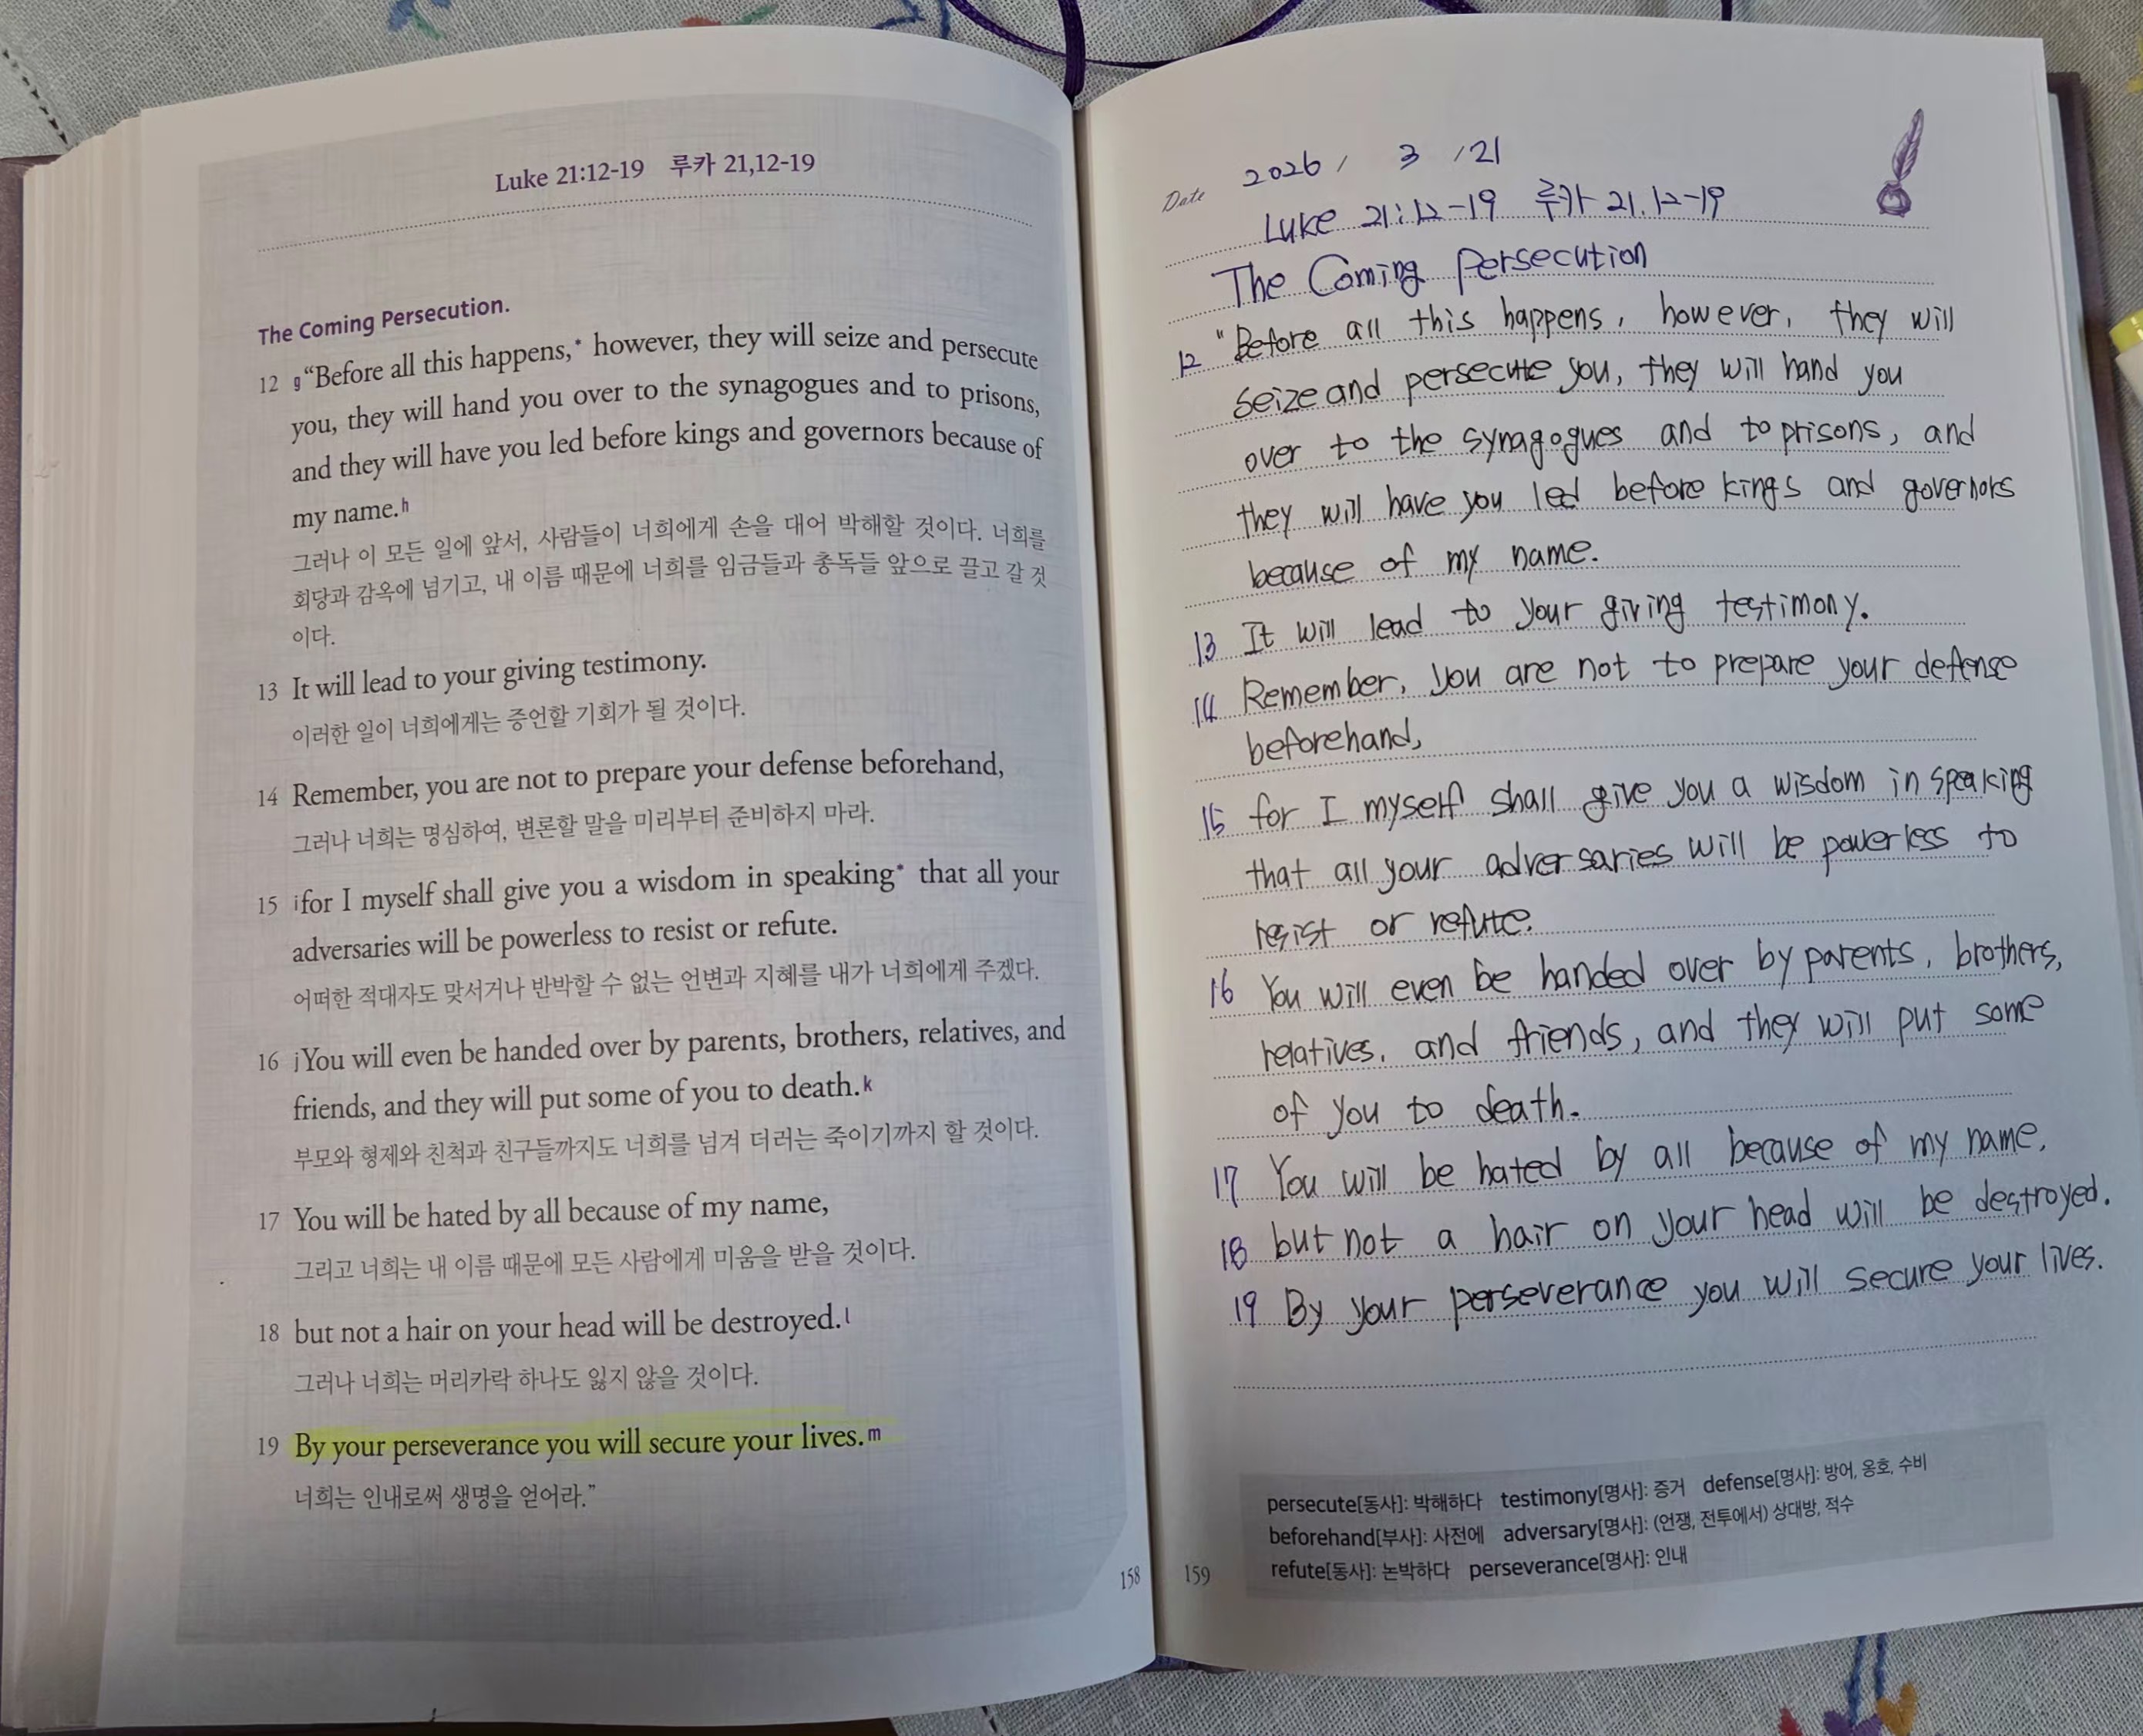 Luke 21:12-19 루카 21,12-19
The Coming Persecution.
12 g“Before all this happens,* however, they will seize and persecute
you, they will hand you over to the synagogues and to prisons,
and they will have you led before kings and governors because of
my name.h
그러나 이 모든 일에 앞서, 사람들이 너희에게 손을 대어 박해할 것이다. 너희를
회당과 감옥에 넘기고, 내 이름 때문에 너희를 임금들과 총독들 앞으로 끌고 갈 것
이다.
13 It will lead to your giving testimony.
이러한 일이 너희에게는 증언할 기회가 될 것이다.
14 Remember, you are not to prepare your defense beforehand,
그러나 너희는 명심하여, 변론할 말을 미리부터 준비하지 마라.
15 ifor I myself shall give you a wisdom in speaking* that all your
adversaries will be powerless to resist or refute.
어떠한 적대자도 맞서거나 반박할 수 없는 언변과 지혜를 내가 너희에게 주겠다.
16 jYou will even be handed over by parents, brothers, relatives, and
friends, and they will put some of you to death.k
부모와 형제와 친척과 친구들까지도 너희를 넘겨 더러는 죽이기까지 할 것이다.
17 You will be hated by all because of my name,
그리고 너희는 내 이름 때문에 모든 사람에게 미움을 받을 것이다.
18 but not a hair on your head will be destroyed.l
그러나 너희는 머리카락 하나도 잃지 않을 것이다.
19 By your perseverance you will secure your lives.m
너희는 인내로써 생명을 얻어라.”
158
Date 2026 / 3 / 21
Luke 21:12-19 루카 21.12-19
The Coming Persecution
12 "Before all this happens, however, they will
seize and persecute you, they will hand you
over to the synagogues and to prisons, and
they will have you led before kings and governors
because of my name.
13 It will lead to your giving testimony.
14 Remember, you are not to prepare your defense
beforehand,
15 for I myself shall give you a wisdom in speaking
that all your adversaries will be powerless to
resist or refute.
16 You will even be handed over by parents, brothers,
relatives, and friends, and they will put some
of you to death.
17 You will be hated by all because of my name,
18 but not a hair on your head will be destroyed.
19 By your perseverance you will secure your lives.
persecute[동사]: 박해하다 testimony[명사]: 증거 defense[명사]: 방어, 옹호, 수비
beforehand[부사]: 사전에 adversary[명사]: (언쟁, 전투에서) 상대방, 적수
refute[동사]: 논박하다 perseverance[명사]: 인내
159